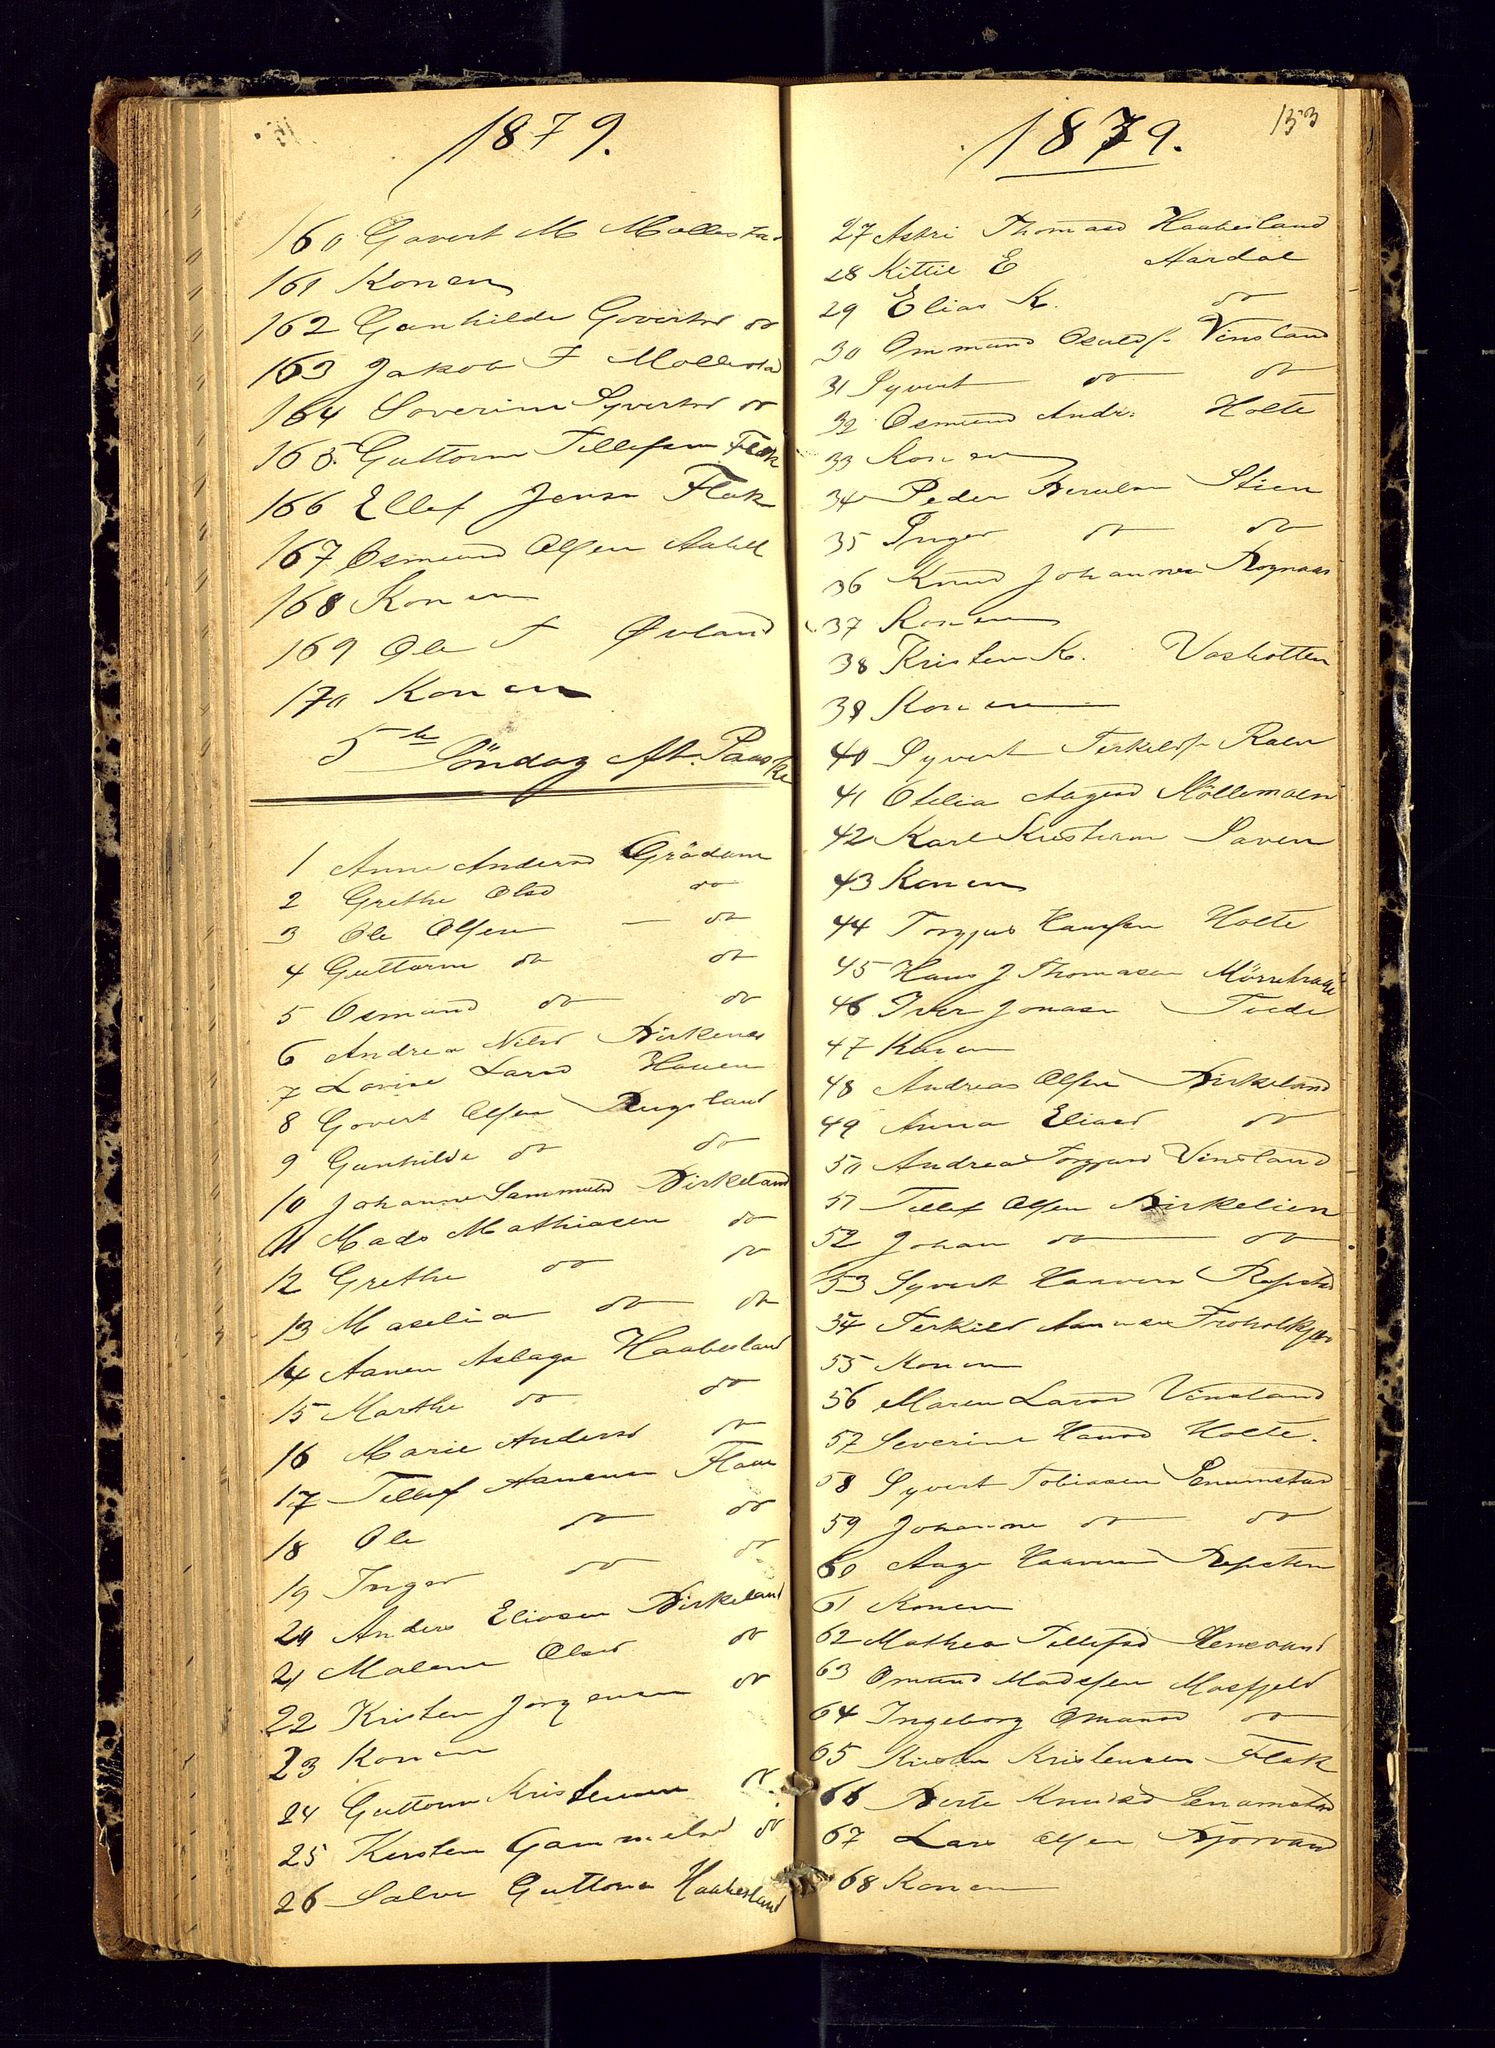 1879.
160 Govert M Mollestad
161 Konen
162 Gunhilde Govertsd do
163 Jakob T Mollestad
164 Soverine Syvertsd do
165 Guttorm Tellefsen Flak
166 Ellef Jensen Flak
167 Osmund Olsen
168 Konen
169 Ole T Øvland
170 Konen
5te Söndag eft. Paaske
1 Anne Andersd Grödum
2 Grethe Olsd do
3 Ole Olsen — do
4 Guttorm do do
5 Osmund do do
6 Andrea Nilsd Birkenes
7 Lovise Larsd Hauen
8 Govert Olsen Rugsland
9 Gunhilde do do
10 Johanne Sammuelsd Birkeland
11 Mads Mathiasen do
12 Grethe do do
13 Maselia do do
14 Aanen Aslags Haabesland
15 Marthe do do
16 Marie Andersd do
17 Tellef Aanensen Flaa
18 Ole do do
19 Inger do do
20 Anders Eliasen Birkeland
21 Malene Olsd do
22 Kristen Jörgensen do
23 Konen
24 Guttorm Kristensen do
25 Kirsten Gammelsd do
26 Salve Guttorm Haabesland
1879. 133
27 Askri Thomasd Haabesland
28 Kittil E Aardal
29 Elias K. do
30 Ommund Osulds Vinsland
31 Syvert do do
32 Osmund Andr: Holte
33 Konen
34 Peder Berulsen Stien
35 Inger do do
36 Knud Johannesen Rognaas
37 Konen
38 Kristen K. Vashotten
39 Konen
40 Syvert Terkelds Raen
41 Otelia Aagesd Möllemoen
42 Karl Kristian Saven
43 Konen
44 Torgjus Hansen Holte
45 Hans J Thomasen
46 Iver Jonasen Tvede
47 Konen
48 Andreas Olsen Birkeland
49 Anna Eliasd do
50 Andrea Torgjusd Vinsland
51 Tellef Olsen Birkelien
52 Johan do do
53 Syvert Haavorsen Repstad
54 Terkild Aanensen
55 Konen
56 Maren Larsd Vinsland
57 Severine Hansd Holte.
58 Syvert Tobiasen Senumstad
59 Johanne do do
60 Aage Haavorsen Repsten
61 Konen
62 Mathea Tellefsd
63 Omund Madssen Mosfjeld
64 Ingeborg Omunsd do
65 Kirsten Kristensen Flak
66 Berte Knudsd Senumstad
67 Lars Olsen Bjorvand
68 Konen